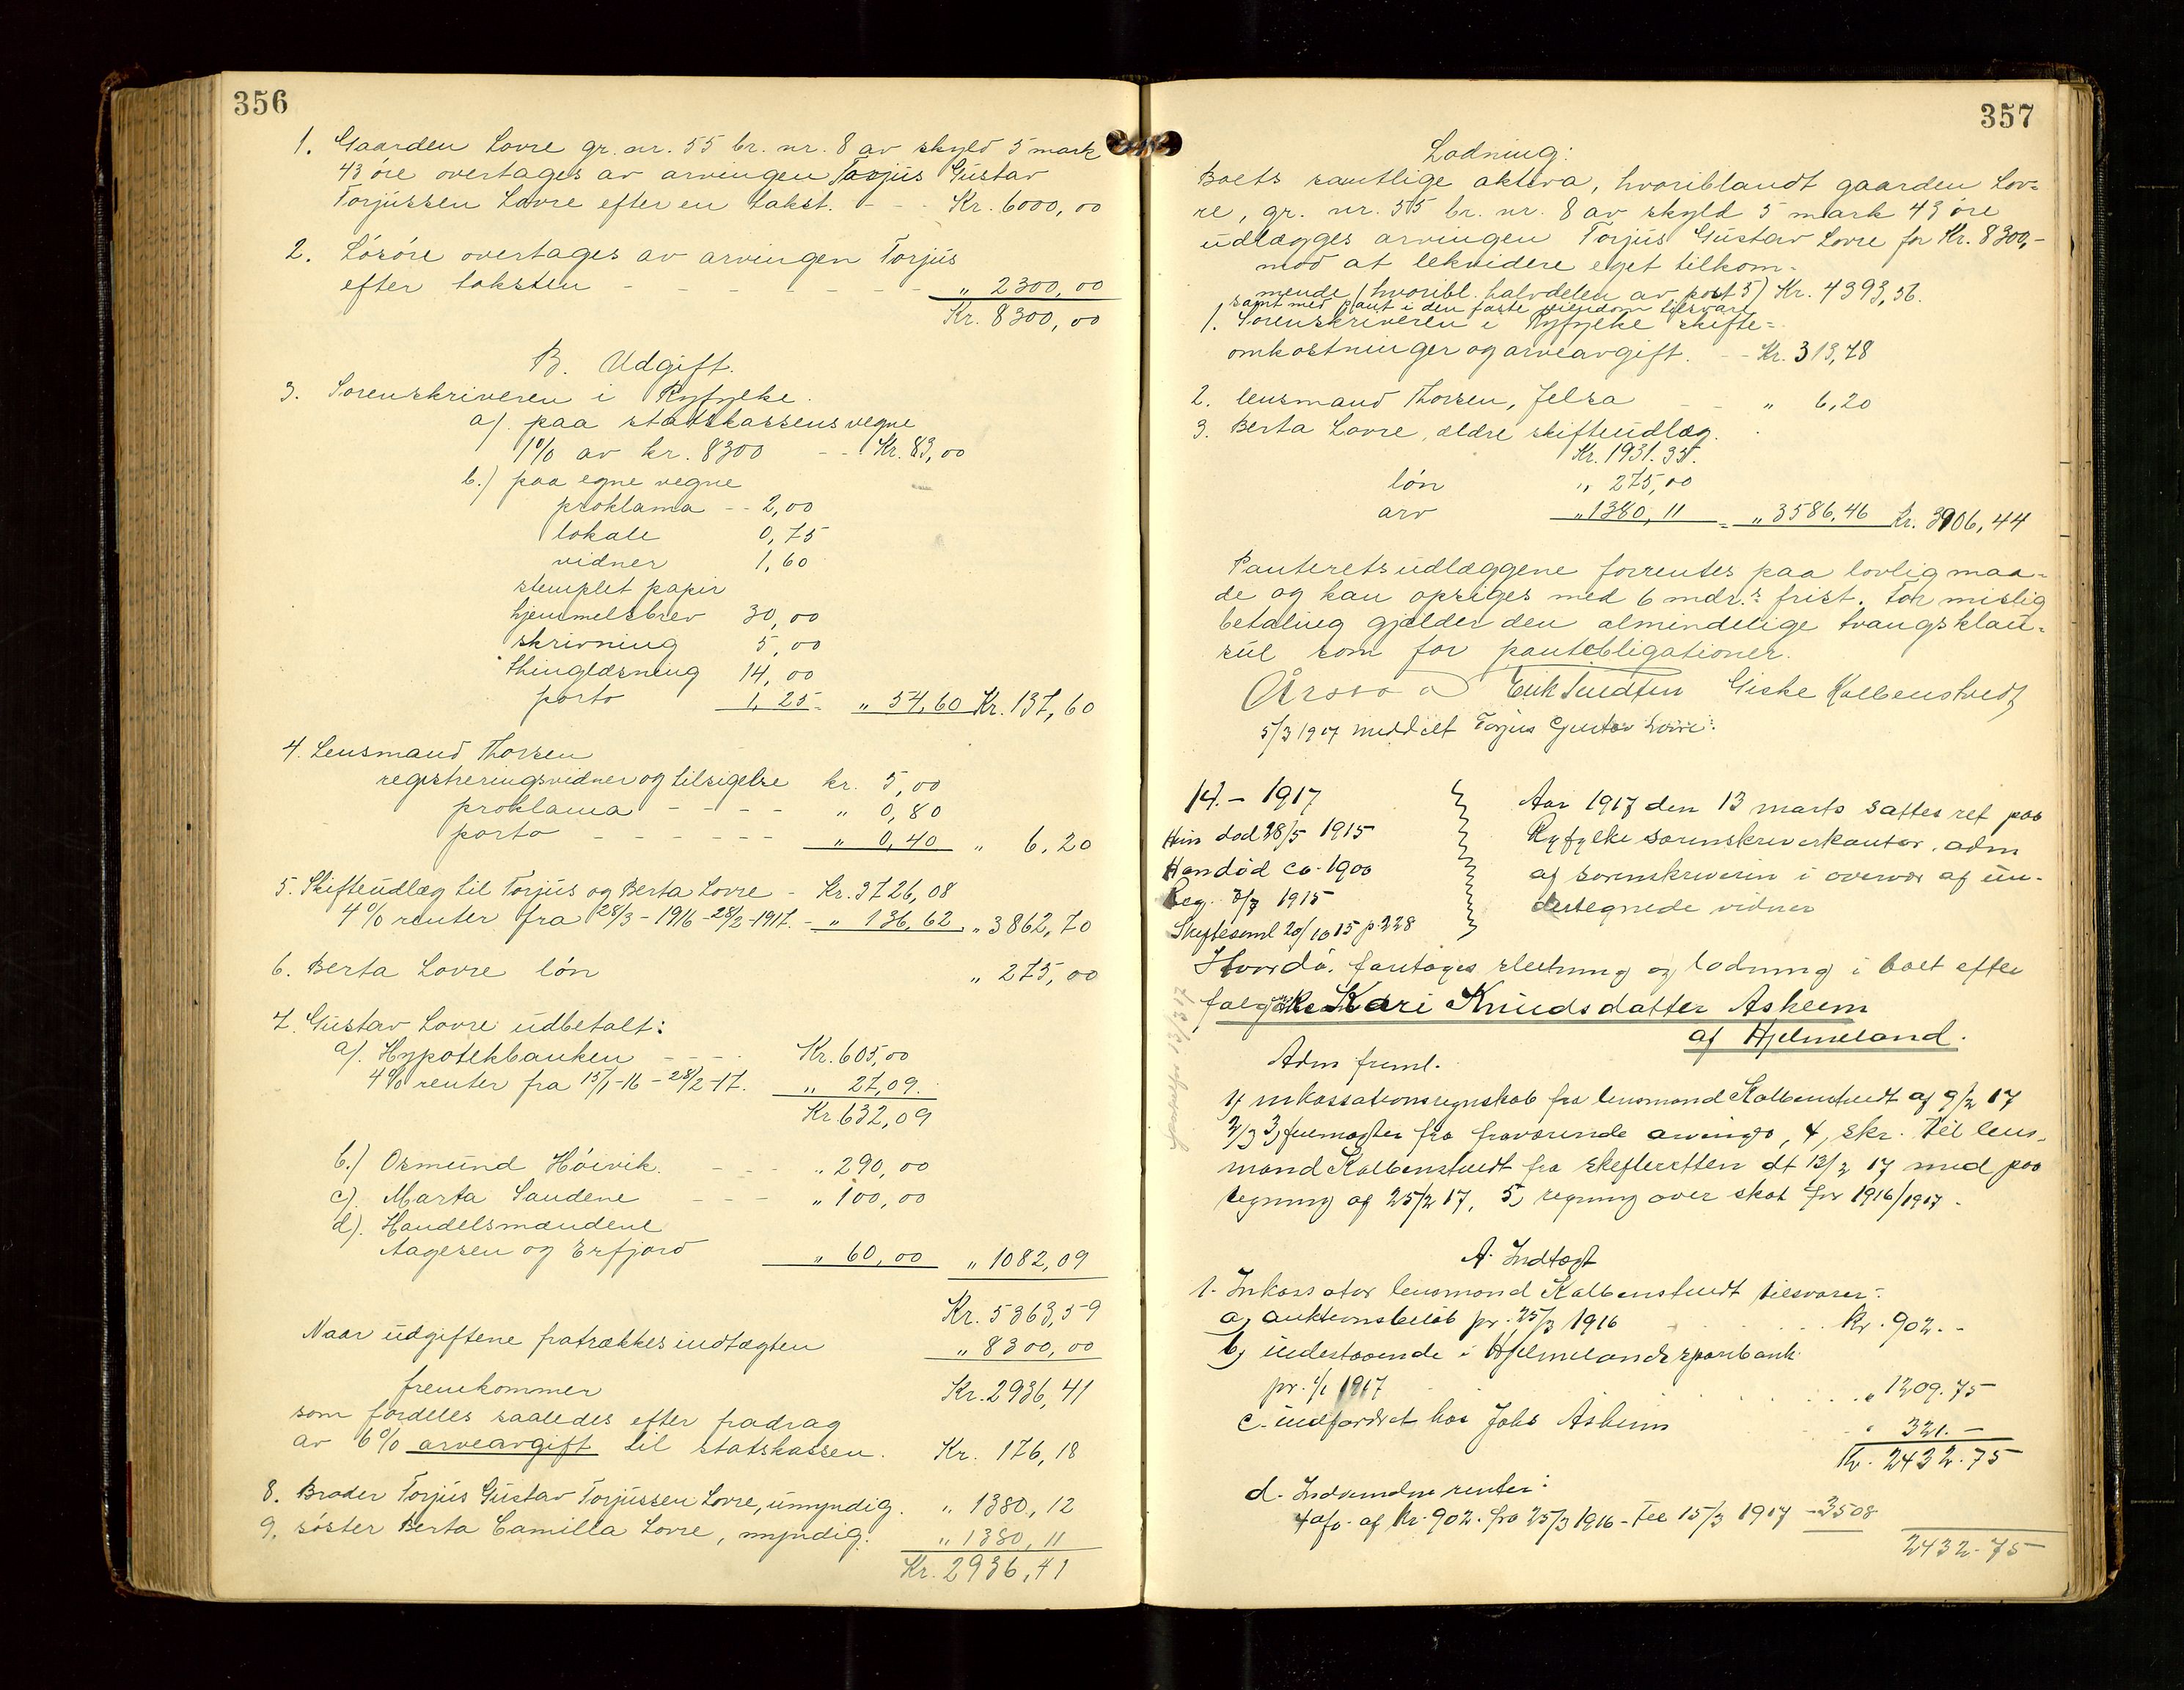 356
1. Gaarden Lovre gr. nr. 55 br. nr. 8 av skyld 5 mark
43 øre overtages av arvingen Torjus Gustav
Torjussen Lovre efter en takst. - - - Kr. 6000,00
2. Løsøre overtages av arvingen Torjus
efter taksten - - - - - - - " 2300,00
Kr. 8300,00
B. Udgift.
3. Sorenskriveren i Ryfylke.
a). paa statskassens vegne
1% av kr. 8300 - - Kr. 83,00
b.) paa egne vegne
proklama - - 2,00
lokale 0,75
vidner 1,60
stemplet papir
hjemmelsbrev 30,00
skrivning 5,00
thinglæsning 14,00
porto 1,25 - " 54,60 Kr. 137,60
4. Lensmand Thorsen
registreringsvidner og tilsigelse kr. 5,00
proklama - - - - " 0,80
porto - - - - - - " 0,40 " 6,20
5. Skifteudlæg til Torjus og Berta Lovre - Kr. 3726,08
4% renter fra 28/3-1916-28/2-1917. - " 136,62. " 3862,70
6. Berta Lovre løn " 275,00
7. Gustav Lovre udbetalt:
a). Hypotekbanken - - - Kr. 605,00
4% renter fra 15/1-16-28/2-17. " 27,09.
Kr. 632,09
b.) Osmund Høivik. - - - " 290,00
c). Marta Sandene - - - " 100,00
d). Handelsmændene
Aagesen og Erfjord " 60,00 " 1082,09
Kr. 5363,59
Naar udgiftene fratrækkes indtægten " 8300,00
fremkommer Kr. 2936,41
som fordeles saaledes efter fradrag
av 6% arveavgift til statskassen. Kr. 176,18
8. Broder Torjus Gustav Torjussen Lovre, umyndig. " 1380,12
9. søster Berta Camilla Lovre, myndig. " 1380,11
Kr. 2936,41
357
Lodning:
Boets samtlige aktiva, hvoriblandt gaarden Lov=
re, gr. nr. 55 br. nr. 8 av skyld 5 mark 43 øre
udlægges arvingen Torjus Gustav Lovre for Kr. 8300,-
mod at lekvidere eget tilkom-
mende (hvoribl. halvdelen av post 5) Kr. 4393,56.
samt med pant i den faste eiendom tilsvare
1. Sorenskriveren i Ryfylke skifte=
omkostninger og arveavgift. - - Kr. 313,78
2. lensmand Thorsen, Jelsa - - " 6,20
3. Berta Lovre, ældre skifteudlæg.
Kr. 1931.35.
løn " 275,00
arv " 1380,11 = " 3586,46 Kr. 3906,44
Panteretsudlæggene forrentes paa lovlig maa-
de og kan opsiges med 6 mdr.s frist. For mislig
betaling gjælder den almindelige tvangsklau-
sul som for pantobligationer.
Giske Kalbenstvedt
5/3 1917 meddelt Torjus Gustav Lovre.
14. - 1917
Hun død 28/5 1915
Han død ca. 1900
Reg. 3/7 1915
Skiftesaml 20/10 15 p. 228
Aar 1917 den 13 marts sattes ret paa
Ryfylke sorenskriverkontor. adm
af sorenskriveren i overvær af un-
dertegnede vidner
Hvorda. foretages slutning og lodning i boet efter
Kari Knudsdatter Askeim
af Hjelmeland.
Adm freml.
1) inkassationsregnskab fra lensmand Kalbenstvedt af 9/2 17
2/ 3, fuldmagter fra fraværende arvinger, 4, skr. til lens-
mand Kalbenstvedt fra skifteretten dt 13/2 17 med paa
tegning af 25/2 17, 5, regning over skat for 1916/1917.
A. Indtægt
1. Inkassator lensmand Kalbenstvedt tilsvarer:
a, auktionsbeløb pr. 25/3 1916 . . . . Kr. 902. -
b, indestaaende i Hjelmelands sparebank
pr. 1/1 1917 . . . . " 1209.75
c. udfordret hos Johs Askeim . . " 321. -
Kr. 2432.75
d. Indvundne renter:
4 o/o. af Kr. 902. fra 25/3 1916 - til 15/3 1917 - 3508
2432.75